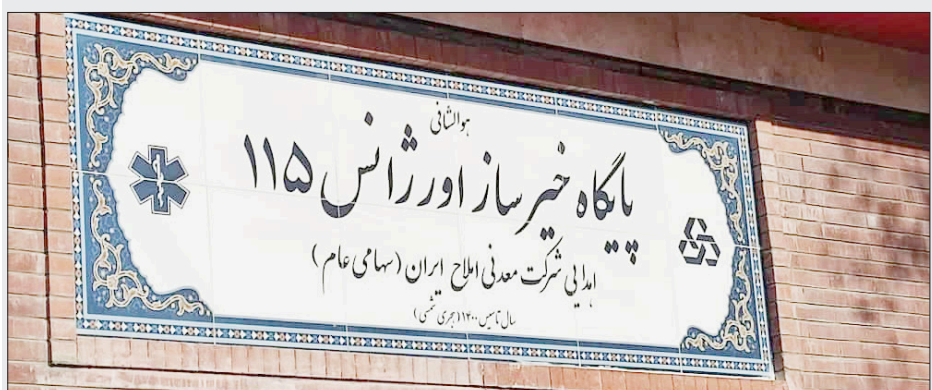 هوالشافی
پایگاه خیرساز اورژانس ۱۱۵
اهدایی شرکت معدنی املاح ایران (سهامی عام)
سال تاسیس ۱۴۰۰ (هجری شمسی)